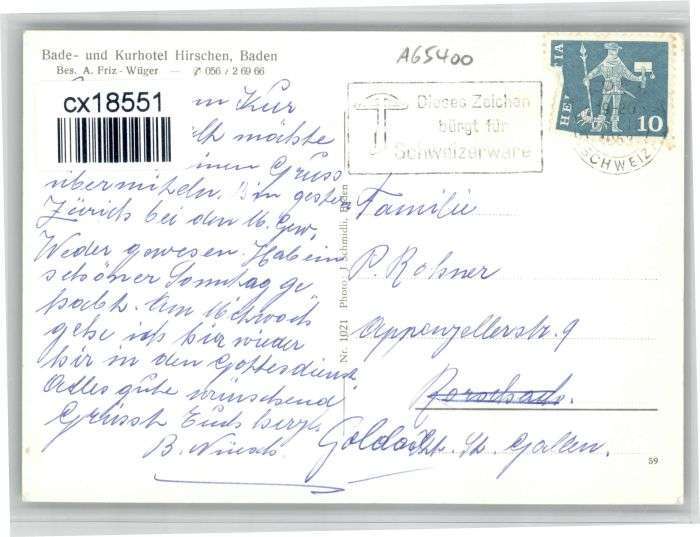 Bade- und Kurhotel Hirschen, Baden
Bes. A. Friz - Wüger — ✆ 056 / 2 69 66
A65400
cx18551
Dieses Zeichen
bürgt für
Schweizerware
HELVETIA
10
SCHWEIZ
Kur
möchte
einen Gruss
übermitteln. Bin gestern
Zürich bei den 16. Gew.
Weder gewesen. Hab ein
schöner Sonntag ge
habt. Am Mitwoch
gehe ich hir wieder
hir in den Gottesdienst
Alles gute wünschend
Grüsst Euch herzl.
B.
Nr. 1021 Photo: J. Schmidli, Baden
Familie
P. Rohner
Appenzellerstr. 9
Rorschach.
Goldach. St. Gallen.
59